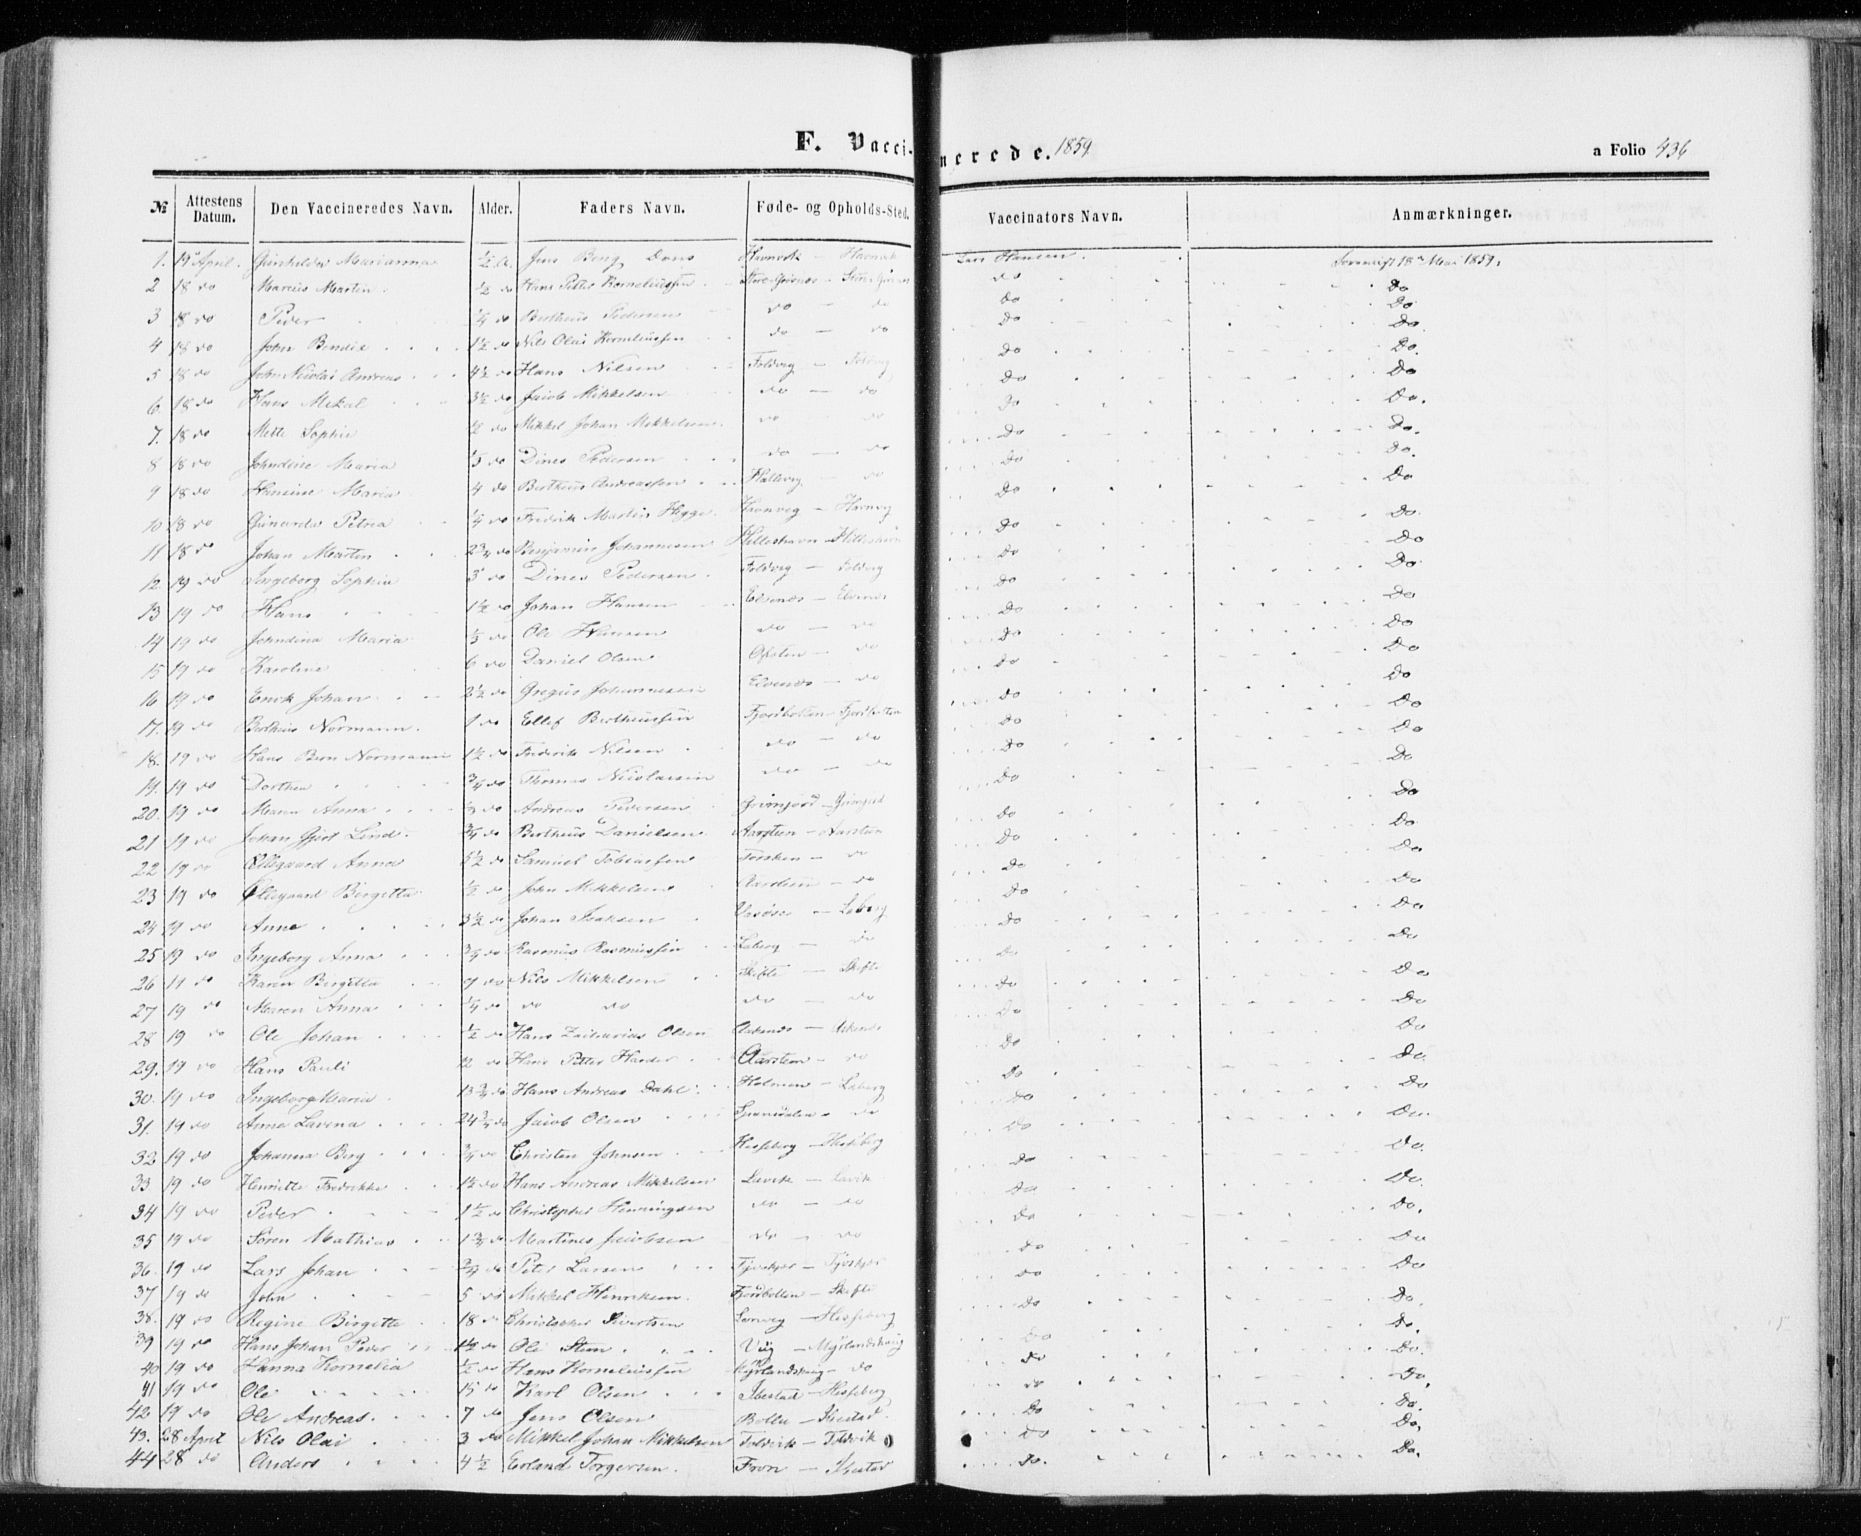 F. Vaccinerede. 1859 a Folio 436
№ Attestens Datum. Den Vaccineredes Navn. Alder. Faders Navn. Føde- og Opholds-Sted. Vaccinators Navn. Anmærkninger.
1. 19 April. Marianna ½ Jens Berg Dons Havnvik — Havnvik Lars Hansen 18 Mai 1859.
2 18 do Marcus Martin ½ do Hans Peter Korneliussen do Do
3 18 do Peder ¼ do Bertheus Pedersen do — do Do Do
4 18 do John Bendix 1½ do Nils Olai Korneliussen do — do Do Do.
5 18 do John Nicolai Andreas 4½ do Hans Nilsen Foldvig — Foldvig Do Do.
6. 18 do Hans Mikal 3½ do Jacob Mikkelsen do — do Do Do
7. 18 do Mette Sophie ½ do Mikkel Johan Mikkelsen do do Do Do.
8 18 do Maria ⅓ do Dines Pedersen do — do Do Do.
9 18 do Hansine Maria 4 do Bertheus Andreassen do Do Do
10 18 do Petrea ¼ do Fredrik Martin Havnvig — Havnvig Do Do.
11 18 do Johan Martin 2¾ do Benjamin Johannesen Do Do
12 19 do Ingeborg Sophia 3 do Dines Pedersen Foldvig — Foldvig Do Do
13 19 do Hans 1½ do Johan Hansen Elvenes — Elvenes Do Do
14 19 do Maria ⅓ do Ole Hansen do — do Do Do
15 19 do Karoline 6 do Daniel Olsen do Do Do
16 19 do Johan 2½ do Gregus Johannesen Elvenes — do Do Do
17. 19 do Bertheus Normann. 1 do Ellef Bertheussen Fjordbotten — Fjordbotten Do Do
18. 19 do Hans Normann 1½ do Fredrik Nilsen do — do Do Do
19. 19 do Dorthea ¾ do Thomas Nicolaisen do — do Do Do
20. 19 do Maren Anna do Andreas Pedersen Grimfjord — Grimfjord Do Do
21 19 do Johan Lind. ¾ do Bertheus Danielsen Aarsteen — Aarsteen Do Do
22 19 do Anna 5½ do Samuel Tobiassen do Do Do
23 19 do Birgitta ⅓ do John Mikkelsen — do Do Do
24 19 do Anne 3½ do Johan Isaksen — Laberg Do Do
25 19 do Ingeborg Anna ¾ do Rasmus Rasmussen Laberg — do Do Do
26 19 do Karen Birgitta 9 do Nils Mikkelsen Skifte — Skifte Do Do
27 19 do Maren Anna ¼ do do do do — do Do Do
28 19 do Ole Johan ½ do Hans Zacharias Olsen Do Do
29. 19 do Hans Pauli do Hans Petter Harder Aarsteen — do Do Do
30. 19 do Ingeborg Maria 13¾ do Hans Andreas Dahl Holmen — Laberg Do Do
31. 19 do Anne Lavina 24¾ do Jacob Olsen do Do Do
32 19 do Johanna Berg ¾ do Christen Johnsen Hesseberg — Hesseberg Do Do.
33 19 do Henriette Fredrikke 1½ do Hans Andreas Mikkelsen Lavik — Lavik Do Do.
34 19 do Peder 1½ do Christopher Henningsen do — do Do Do.
35 19 do Søren Mathias 1¾ do Martines Jacobsen do — do Do Do
36. 19 do Lars Johan ¾ do Peter Larsen Do Do
37 19 do John 5 do Mikkel Henriksen Fjordbotten — Skifte Do Do.
38. 19 do Regine Birgitte 18 do Christopher Sivertsen — Hesseberg Do Do.
39 19 do Hans Johan Peder 1½ do Ole — Myrlandshaug Do Do.
40 19 do Hanna Kornelia ½ do Hans Korneliussen Myrlandshaug — do Do Do.
41 19 do Ole 15 do Karl Olsen Ibestad — Hesseberg Do Do.
42 19 do Ole Andreas. 7 do Jens Olsen Bolla — Ibestad Do Do.
43. 28 April Nils Olai 3 do Mikkel Johan Mikkelsen Foldvik — Foldvik Do Do.
44 28 do Anders 4½ Erland Torgersen. Fron — Ibestad Do. Do.